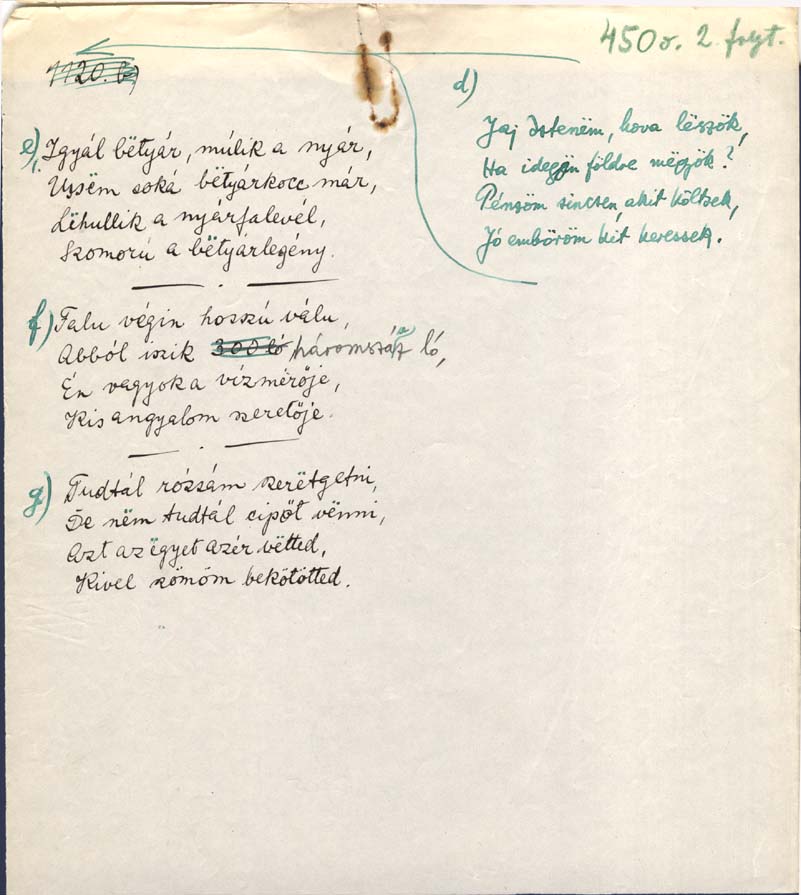 450v. 2. folyt.
1120. b)
d)
Jaj Istenëm, hova lëszök,
Ha idegön földre mëgyök?
Pénzöm sincsen, akit költsek,
Jó emböröm kit keressek.
e) Igyál bëtyár, múlik a nyár,
Ussëm soká bëtyárkocc már,
Lëhullik a nyárfalevél,
Szomorú a bëtyárlegény.
f) Falu végin hosszú válu,
Abból iszik 300 ló háromszáz ló,
Én vagyok a vízmérője,
Kis angyalom szeretője.
g) Tudtál rózsám szerëtgetni,
De nëm tudtál cipőt vënni,
Azt az ëgyet azér vëtted,
Kivel szömöm bekötötted.